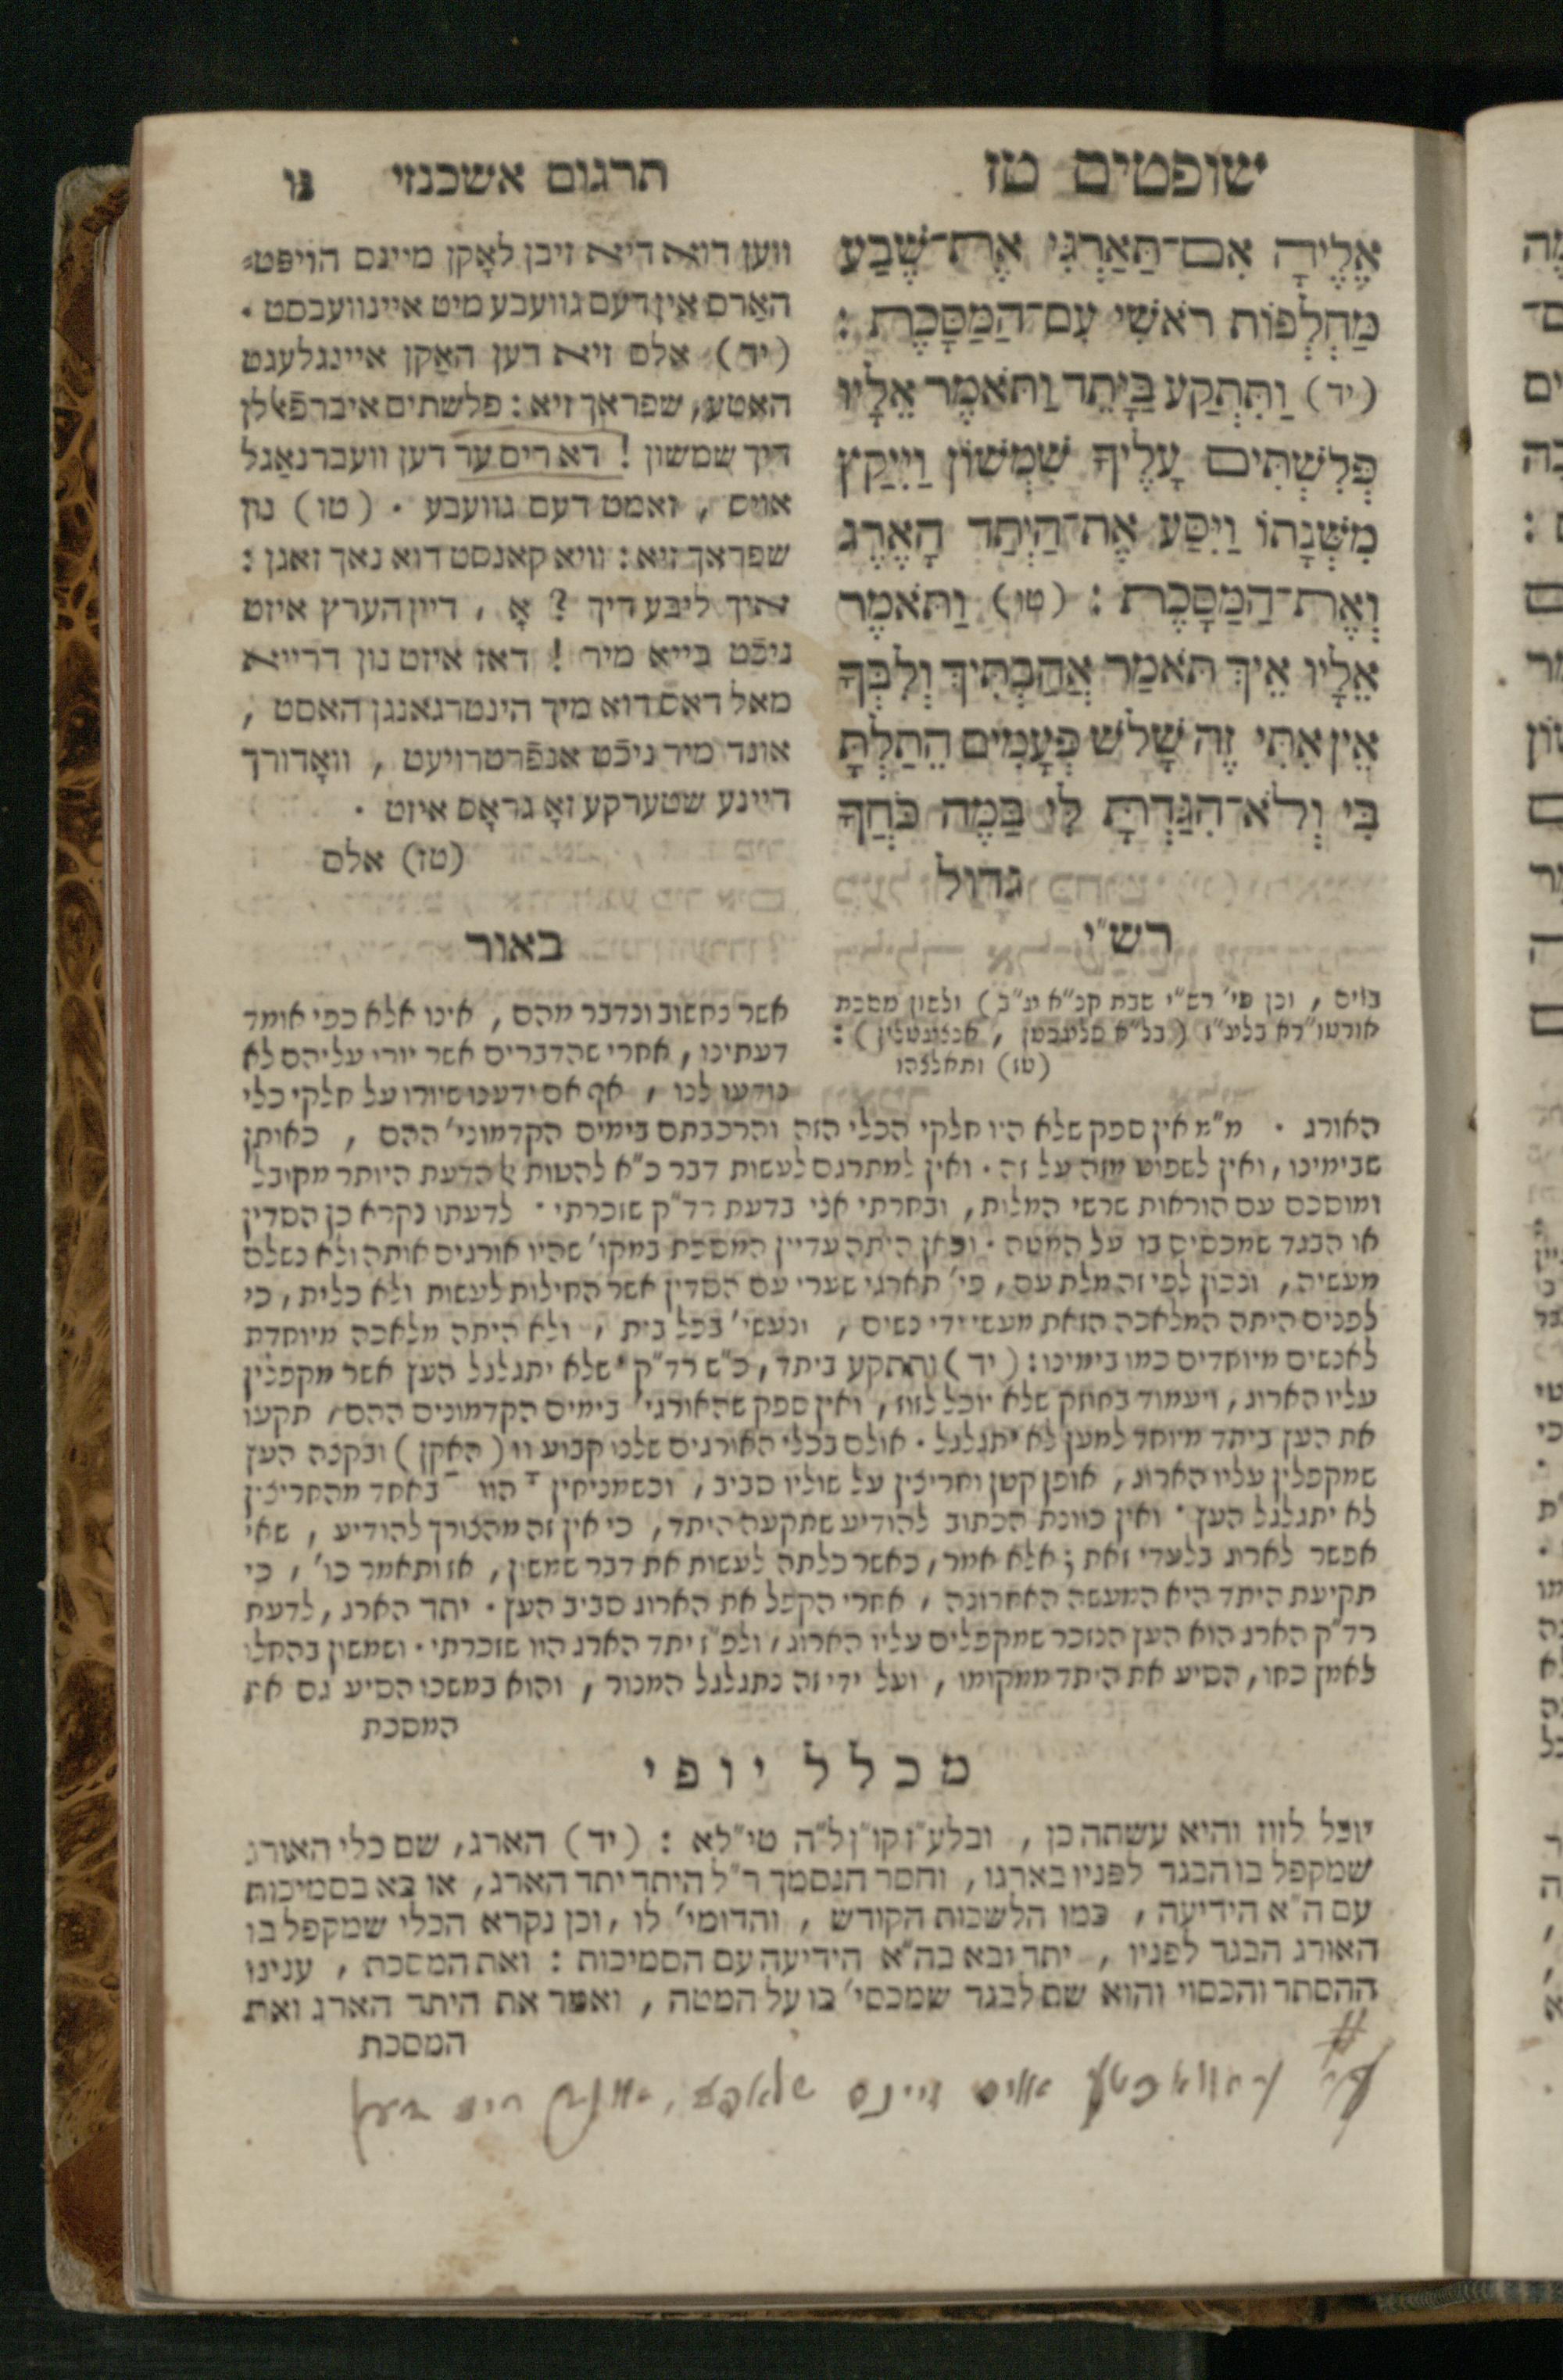 שופטים טז
תרגום אשכנזי נו
אֵלֶיהָ אִם־תַּאַרְגִי אֶת־שֶׁבַע
מַחְלְפוֹת רֹאשִׁי עִם־הַמַּסָּכֶת :
(יד) וַתִּתְקַע בַּיָּתֵד וַתֹּאמֶר אֵלָיו
פְּלִשְׁתִּים עָלֶיךָ שִׁמְשׁוֹן וַיִּיקַץ
מִשְּׁנָתוֹ וַיִּסַּע אֶת־הַיְתַד הָאֶרֶג
וְאֶת־הַמַּסָּכֶת : (טו) וַתֹּאמֶר
אֵלָיו אֵיךְ תֹּאמַר אֲהַבְתִּיךְ וְלִבְּךָ
אֵין אִתִּי זֶה שָׁלֹשׁ פְּעָמִים הֵתַלְתָּ
בִּי וְלֹא־הִגַּדְתָּ לִּי בַּמֶּה כֹּחֲךָ
גדול
ווען דוא דיא זיבן לאָקן מיינס הויפט־
האַרס אין דעם גוועבע מיט איינוועבסט .
(יד) אלס זיא דען האַקן איינגלעגט
האטע, שפראך זיא : פלשתים איברפֿאלן
דיך שמשון ! דא ריס ער דען וועברנאַגל
אויס , זאמט דעם גוועבע . (טו) נון
שפראך זיא : וויא קאנסט דוא נאך זאגן :
איך ליבע דיך ? אָ , דיין הערץ איזט
ניכֿט בייא מיר ! דאז איזט נון דרייא
מאל דאס דוא מיך הינטרגאנגן האסט ,
אונד מיר ניכֿט אנפֿרטרויעט , וואָדורך
דיינע שטערקע זאָ גראָס איזט .
(טז) אלס
רש"י
בויס , וכן פי' רש"י שבת קנ"א ע"ב) ולשון מסכת
אורטו"רא בלע"ז
(טז) ותאלצהו
באור
אשר נחשוב ונדבר מהם , אינו אלא כפי אומד
דעתינו , אחרי שהדברים אשר יורי עליהם לא
נודעו לנו , אף אם ידענו שיורו על חלקי כלי
האורג . מ"מ אין ספק שלא היו חלקי הכלי הזה והרכבתם בימים הקדמוני' ההם , כאותן
שבימינו , ואין לשפוט מזה על זה . ואין למתרגם לעשות דבר כ"א להטות להדעת היותר מקובל
ומוסכם עם הוראות שרשי המלות , ובחרתי אני בדעת רד"ק שזכרתי . לדעתו נקרא כן הסדין
או הבגד שמכסים בו על המטה . וכאן היתה עדיין המסכת במקו' שהיו אורגים אותה ולא נשלם
מעשיה , ונכון לפי זה מלת עם , פי' תארגי שערי עם הסדין אשר החילות לעשות ולא כלית , כי
לפנים היתה המלאכה הזאת מעשי ידי נשים , ונעשי' בכל בית , ולא היתה מלאכה מיוחדת
לאנשים מיוחדים כמו בימינו : (יד) ותתקע ביתד , כ"ש רד"ק שלא יתגלגל העץ אשר מקפלין
עליו הארוג , ויעמוד בחוזק שלא יוכל לזוז , ואין ספק שהאורגי' בימים הקדמונים ההם , תקעו
את העץ ביתד מיוחד למען לא יתגלגל . אולם בכלי האורגים שלנו קבוע וו (האקן) ובקנה העץ
שמקפלין עליו הארוג , אופן קטן וחריצין על שוליו סביב , וכשמניחין הוו באחד מהחריצין
לא יתגלגל העץ . ואין כוונת הכתוב להודיע שתקעה היתד , כי אין זה מהצורך להודיע , שאי
אפשר לארוג בלעדי זאת ; אלא אמר , כאשר כלתה לעשות את דבר שמשון , אז ותאמר כו' , כי
תקיעת היתד היא המעשה האחרונה , אחרי הקפל את הארוג סביב העץ . יתד הארג , לדעת
רד"ק הארג הוא העץ הנזכר שמקפלים עליו הארוג , ולפ"ז יתד הארג הוו שזכרתי . ושמשון בהחלו
לאמן כחו , הסיע את היתד ממקומו , ועל ידי זה נתגלגל המנור , והוא במשכו הסיע גם את
המסכת
מכלל יופי
יוכל לזוז והיא עשתה כן , ובלע"ז קו"ן ל"ה טי"לא : (יד) הארג , שם כלי האורג
שמקפל בו הבגד לפניו בארגו , וחסר הנסמך ר"ל היתד יתד הארג , או בא בסמיכות
עם ה"א הידיעה , כמו הלשכות הקודש , והדומי' לו , וכן נקרא הכלי שמקפל בו
האורג הבגד לפניו , יתד ובא בה"א הידיעה עם הסמיכות : ואת המסכת , ענינו
ההסתר והכסוי והוא שם לבגד שמכסי' בו על המטה , ואמר את היתד הארג ואת
המסכת
# ער ערוואכטע אויס זיינם שלאפע , אונד ריס דען